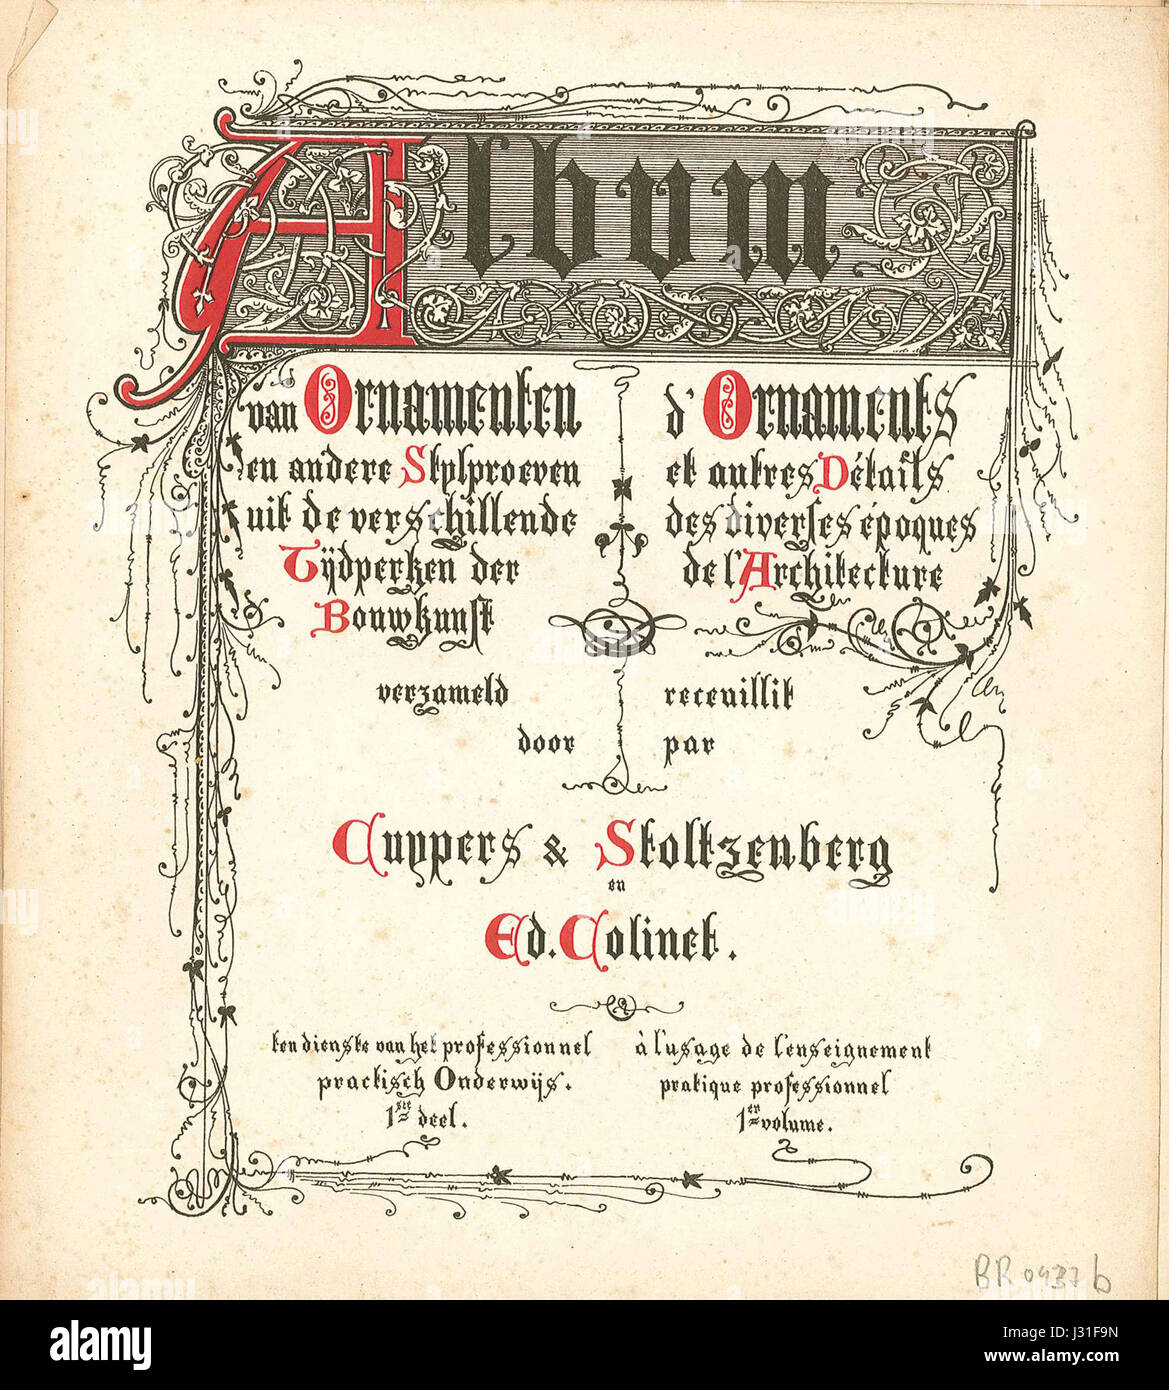 Album
van Ornamenten
en andere Stylproeven
uit de verschillende
Tijdperken der
Bouwkunst
verzameld
door
d'Ornaments
et autres Détails
des diverses époques
de l'Architecture
receuillit
par
Cuypers & Stoltzenberg
en
Ed. Colinet.
ten dienste van het professionnel
practisch Onderwijs.
1ste deel.
à l'usage de l'enseignement
pratique professionnel
1er volume.
BR 0437 b
alamy
Image ID: J31F9N
www.alamy.com